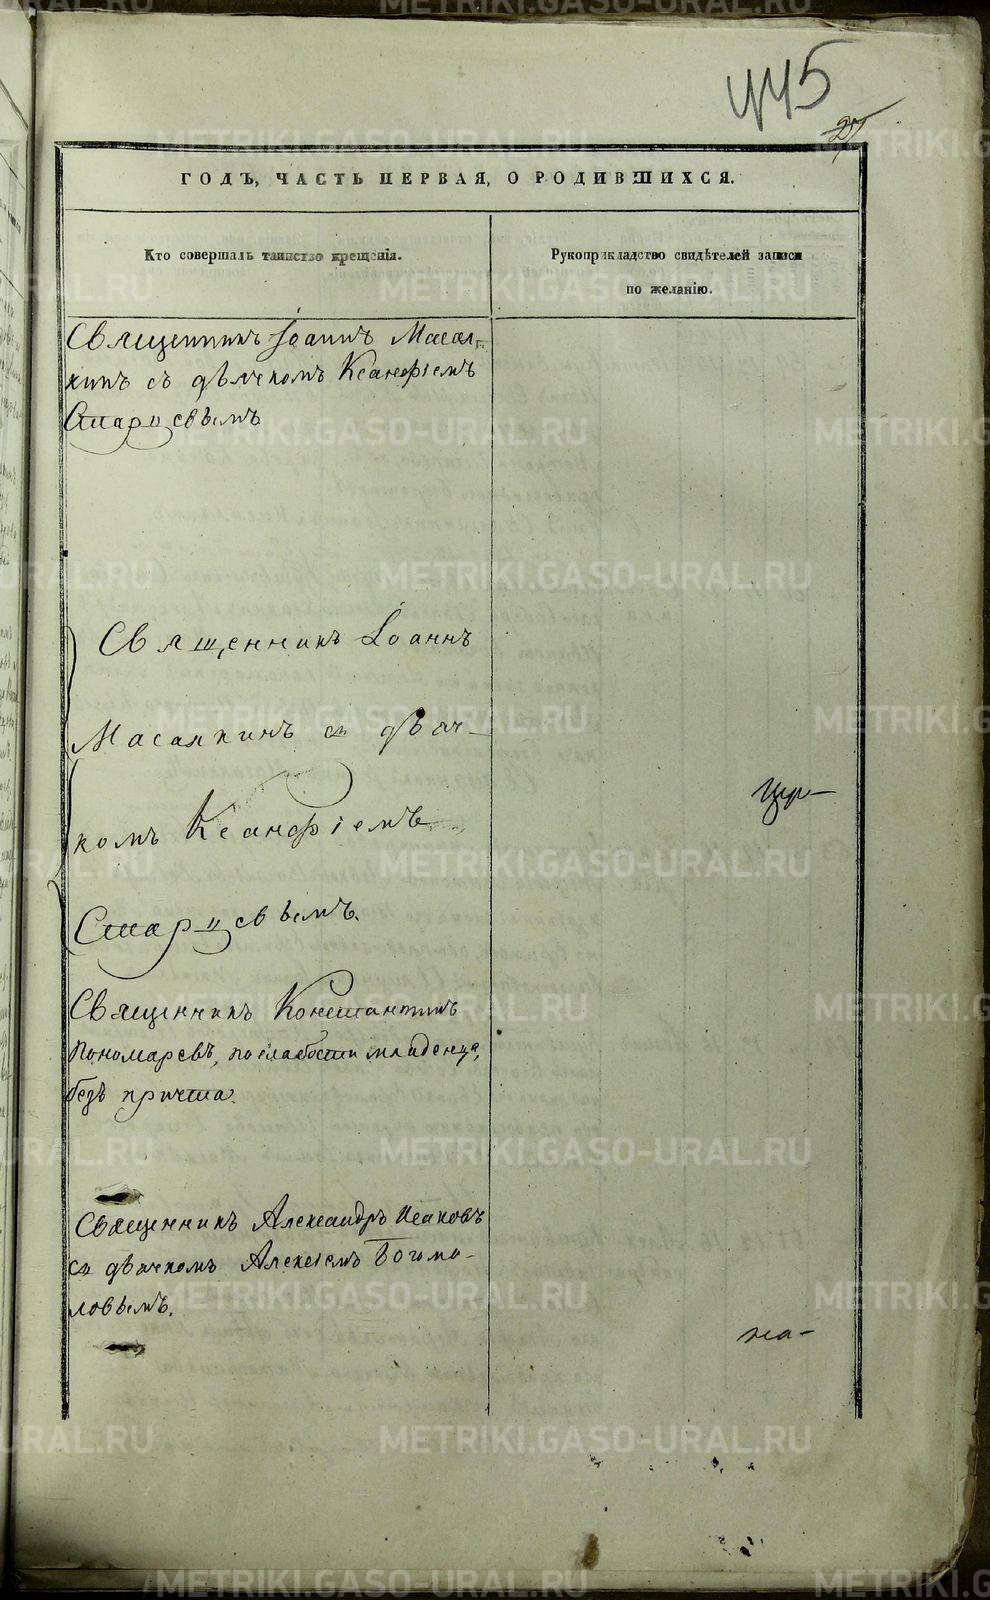 445
27
ГОДЪ, ЧАСТЬ ПЕРВАЯ, О РОДИВШИХСЯ.
Кто совершалъ таинство крещенія.
Рукоприкладство свидѣтелей записи
по желанію.
Священникъ Іоаннъ Масал-
кинъ съ дьячкомъ Ксанфіемъ
Старцевымъ
Священникъ Іоаннъ
Масалкинъ съ дьяч-
комъ Ксанфіемъ
Старцевымъ.
Священникъ Константинъ
Пономаревъ, по слабости младенца,
безъ причта.
Священникъ Александръ Исаковъ
съ дьячкомъ Алексіемъ Богомо-
ловымъ.
на-
METRIKI.GASO-URAL.RU